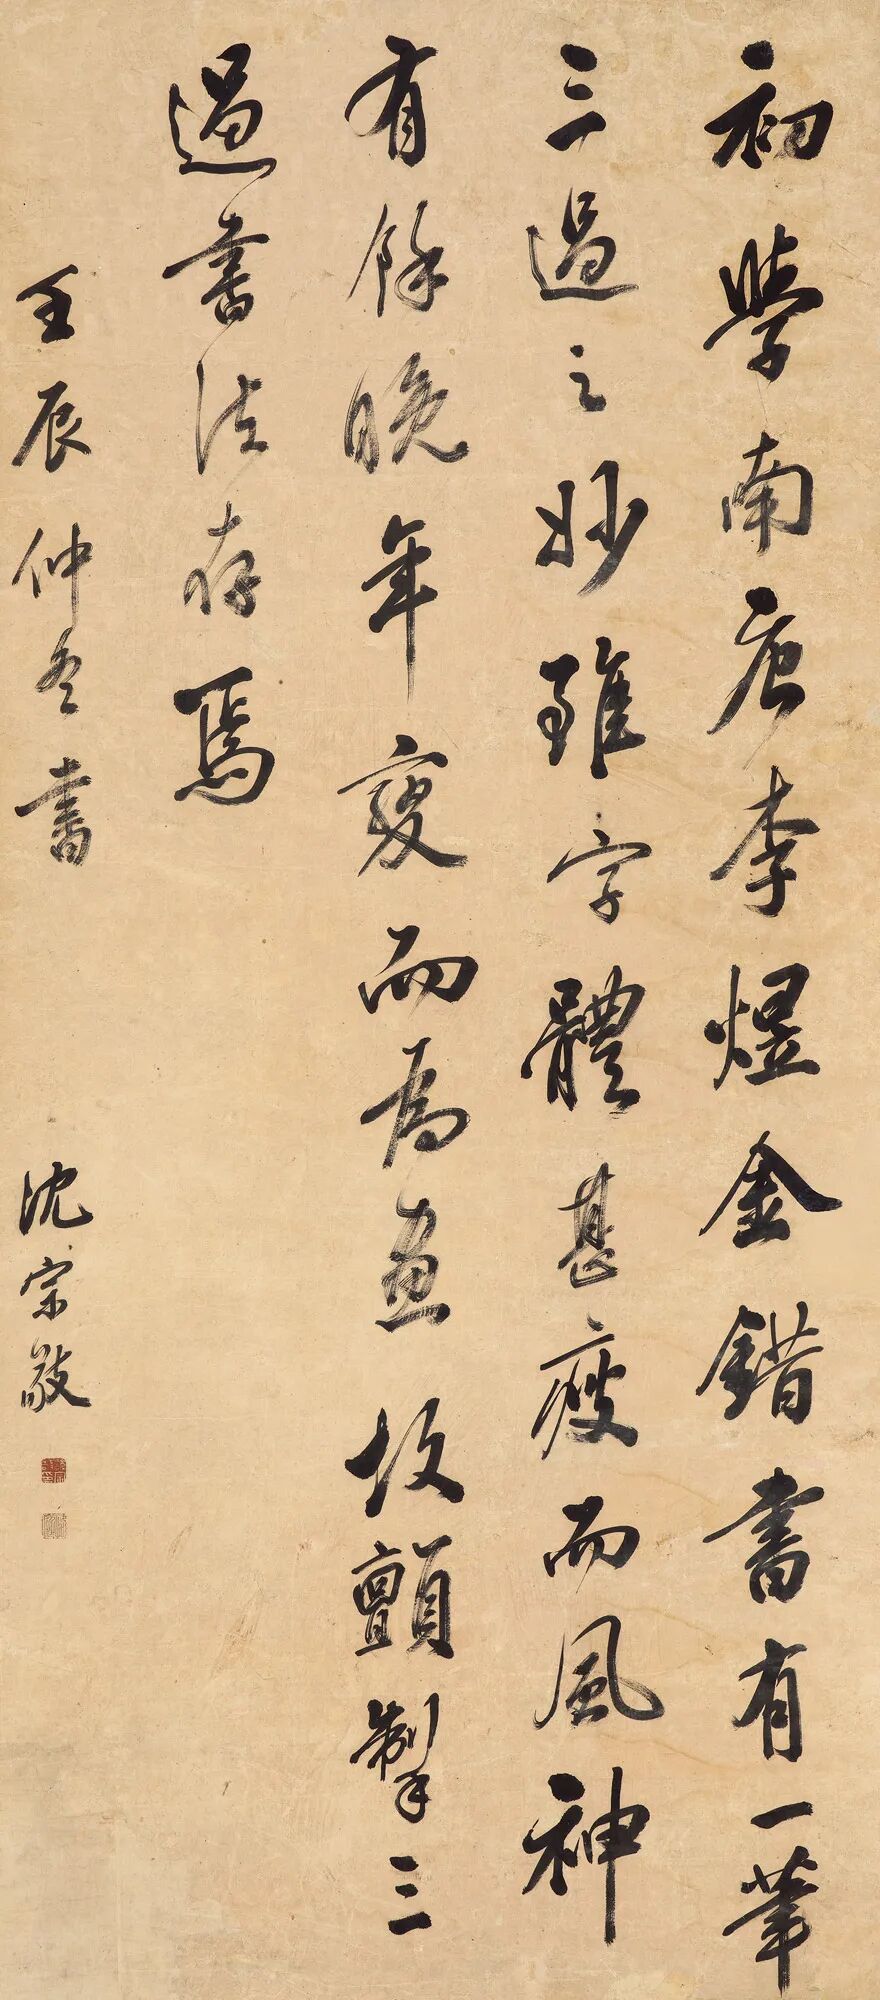 初學南唐李煜金錯書有一筆
三過之妙雖字體甚瘦而風神
有餘晚年變而為畫故顫掣三
過書法存焉
壬辰仲冬書
沈宗敬